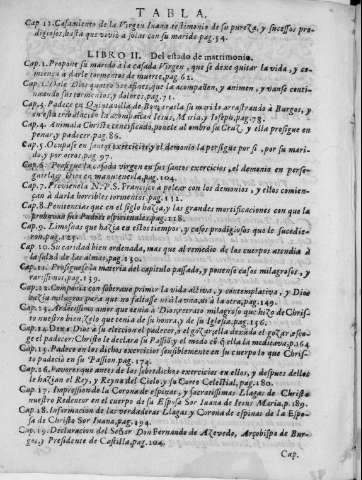 TABLA.
Cap. 12. Casamiento de la Virgen Iuana, testimonio de su pureza, y sucessos pro-
digiosos, hasta que voviò a solas con su marido pag. 54.
LIBRO II. Del estado de matrimonio.
Cap. 1. Propone su marido à la casada Virgen, que se dexe quitar la vida, y co-
miença à darle tormentos de muerte, pag. 62.
Cap. 2. Dale Dios quatro Santos, que la acompañen, y animen, y vanse conti-
nuando sus tormentos y dolores, pag. 71.
Cap. 3. Padece en Quintanilla de Bon
su marido arrastrando à Burgos, y
en esta tribulacion la acompañan Iesus, Maria, y Ioseph, pag. 78.
Cap. 4. Animala Christo crucificado, ponele al ombro su Cruz, y ella prosigue en
penar, y padecer, pag. 86.
Cap. 5. Ocupase en santos exercicios, y el demonio la persigue por si, por su mari-
do, y por otros, pag. 97.
Cap. 6. Prosigue la casada virgen en sus santos exercicios, el demonio en perse-
guirla, y Dios en
pag. 104.
Cap. 7. Previenela N. P. S. Francisco a pelear con los demonios, y ellos comien-
çan à darla horribles tormentos, pag. 112.
Cap. 8. Penitencias que en el siglo hazia, y las grandes mortificaciones con que la
probaron sus Padres espirituales, pag. 118.
Cap. 9. Limosnas que hazia en ellos tiempos, y casos prodigiosos que le sucedie-
ron, pag. 124.
Cap. 10. Su caridad bien ordenada, mas que al remedio de los cuerpos atendia à
la salud de las almas, pag. 130.
Cap. 11. Prosiguese la materia del capitulo passado, y ponense casos milagrosos, y
rarissimos, pag. 139.
Cap. 12. Componia con soberano primor la vida activa, y contemplativa, y Dios
hazia milagros para que no faltasse ni à la vna, ni à la otra, pag. 149.
Cap. 13. Ardentissimo amor que tenia à Dios; y raro milagro que hizo de Christo
nuestro bien zelo que tenia de su honra, y de su Iglesia, pag. 156.
Cap. 14. Dexa Dios à su eleccion el padecer, ò el gozar; ella dexado el gozar esco-
ge el padecer: Christo le declara su Passiõ, y el modo cõ q̃ ella la meditava, p. 164.
Cap. 15. Padece en los dichos exercicios sensiblemente en su cuerpo lo que Chris-
to padeciò en su Passion, pag. 174.
Cap. 16. Favores que antes de los sobredichos exercicios en ellos, y despues dellos
le hazian el Rey, y Reyna del Cielo, y su Corte Celestial, pag. 180.
Cap. 17. Impression de la Corona de espinas, y sacratissimas Llagas de Christo
nuestro Redentor en el cuerpo de su Esposa Sor Iuana de Iesus Maria, p. 189.
Cap. 18. Informacion de las verdaderas Llagas, y Corona de espinas de la Espo-
sa de Christo Sor Iuana, pag. 194.
Cap. 19. Declaracion del Señor Don Fernando de Azevedo, Arçobispo de Bur-
gos, y Presidente de Castilla, pag. 204.
Cap.